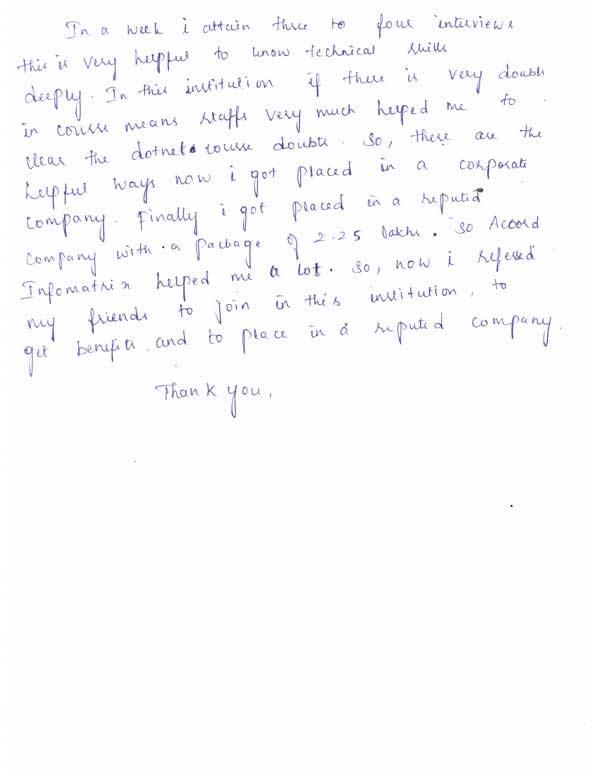 In a week i attain three to four interviews
this is very helpful to know technical skills
deeply. In this institution if there is very doubts
in course means staffs very much helped me to
clear the dotnet course doubts. So, these are the
helpful ways now i got placed in a corporate
company. Finally i got placed in a reputed
company with a package of 2.25 lakhs. So Accord
Infomatrix helped me a lot. So, now i refered
my friends to join in this institution, to
get benefits and to place in a reputed company.
Thank you,